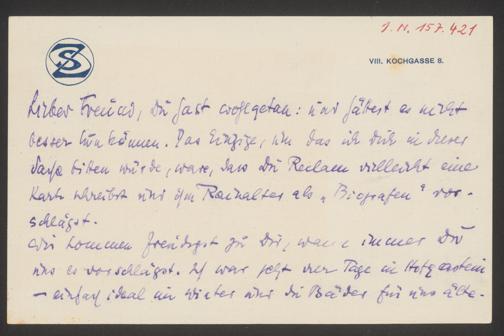 I. N. 157.421
SZ
VIII. KOCHGASSE 8.
Lieber Freund, Du hast wohlgetan: und hättest es nicht
besser tun können. Das Einzige, um das ich Dich in dieser
Sache bitten würde, wäre, dass Du Reclam vielleicht eine
Karte schreibst und ihm Rainalter als „Biografen" vor-
schlägst.
Wir kommen freudigst zu Dir, wann immer Du
uns es vorschlägst. Ich war jetzt vier Tage in Hofgastein
— einfach ideal im Winter und die Bäder für uns älte-